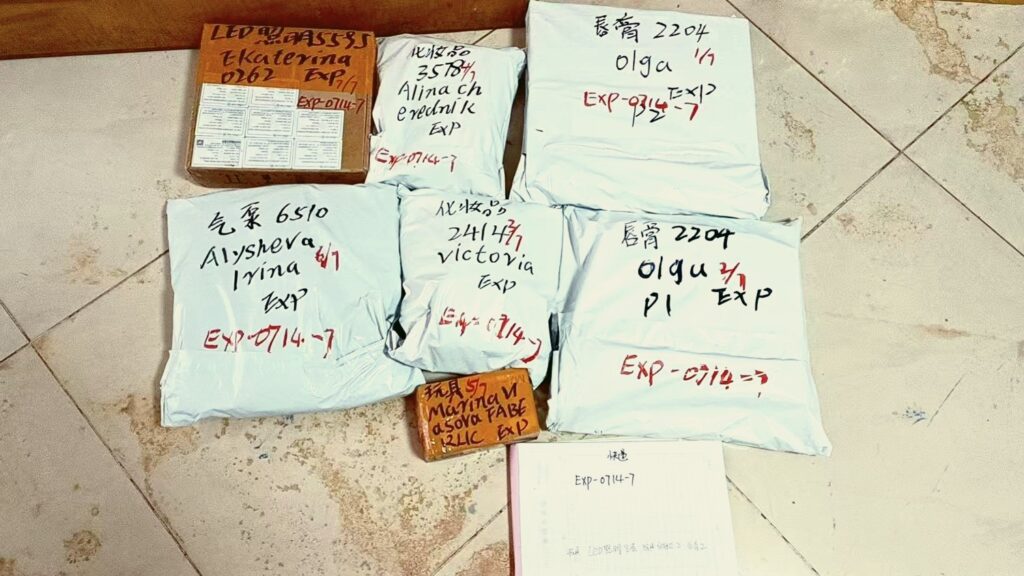 LED照明5595
Ekaterina
0262 EXP 7/7
EXP-0714-7
化妆品
3578 4/7
Alina ch
erednik
EXP
EXP-0714-7
唇膏 2204
Olga 1/7
EXP
EXP-0714-7
P2
气泵 6510
Alysheva
Irina 6/7
EXP
EXP-0714-7
化妆品
2414 3/7
victoria
EXP
EXP-0714-7
唇膏 2204
Olga 2/7
P1 EXP
EXP-0714-7
玩具 5/7
Marina Vl
asova FABE
RLIC EXP
快递
EXP-0714-7